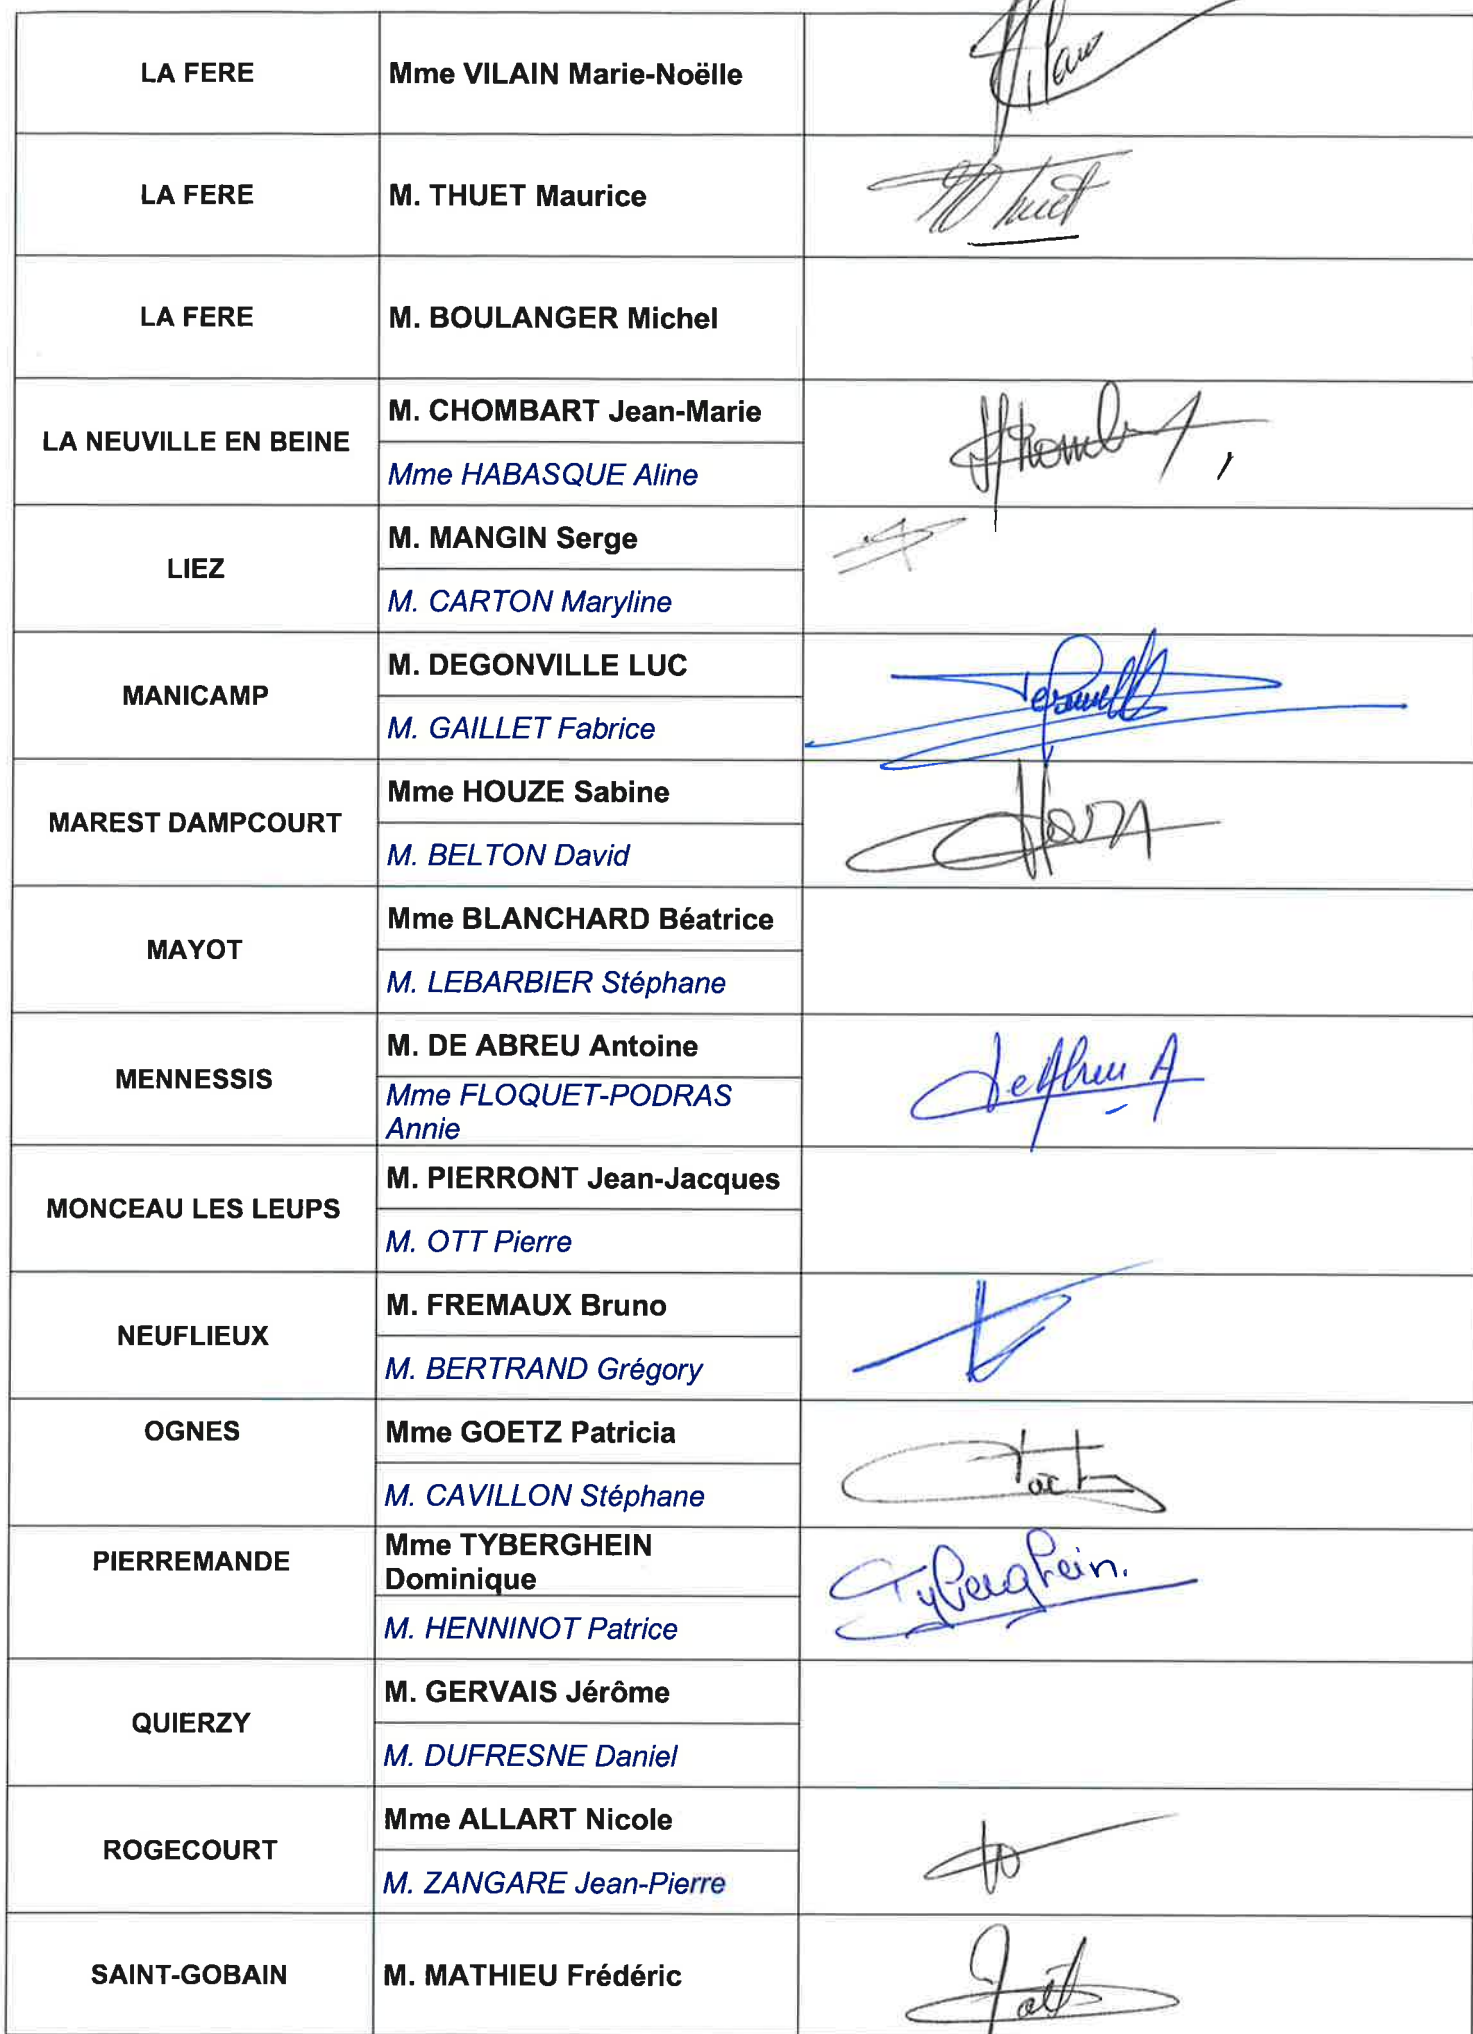 LA FERE
Mme VILAIN Marie-Noëlle
LA FERE
M. THUET Maurice
Thuet
LA FERE
M. BOULANGER Michel
LA NEUVILLE EN BEINE
M. CHOMBART Jean-Marie
Mme HABASQUE Aline
LIEZ
M. MANGIN Serge
M. CARTON Maryline
MANICAMP
M. DEGONVILLE LUC
M. GAILLET Fabrice
MAREST DAMPCOURT
Mme HOUZE Sabine
M. BELTON David
MAYOT
Mme BLANCHARD Béatrice
M. LEBARBIER Stéphane
MENNESSIS
M. DE ABREU Antoine
Mme FLOQUET-PODRAS
Annie
MONCEAU LES LEUPS
M. PIERRONT Jean-Jacques
M. OTT Pierre
NEUFLIEUX
M. FREMAUX Bruno
M. BERTRAND Grégory
OGNES
Mme GOETZ Patricia
M. CAVILLON Stéphane
PIERREMANDE
Mme TYBERGHEIN
Dominique
M. HENNINOT Patrice
Tyberghein.
QUIERZY
M. GERVAIS Jérôme
M. DUFRESNE Daniel
ROGECOURT
Mme ALLART Nicole
M. ZANGARE Jean-Pierre
SAINT-GOBAIN
M. MATHIEU Frédéric